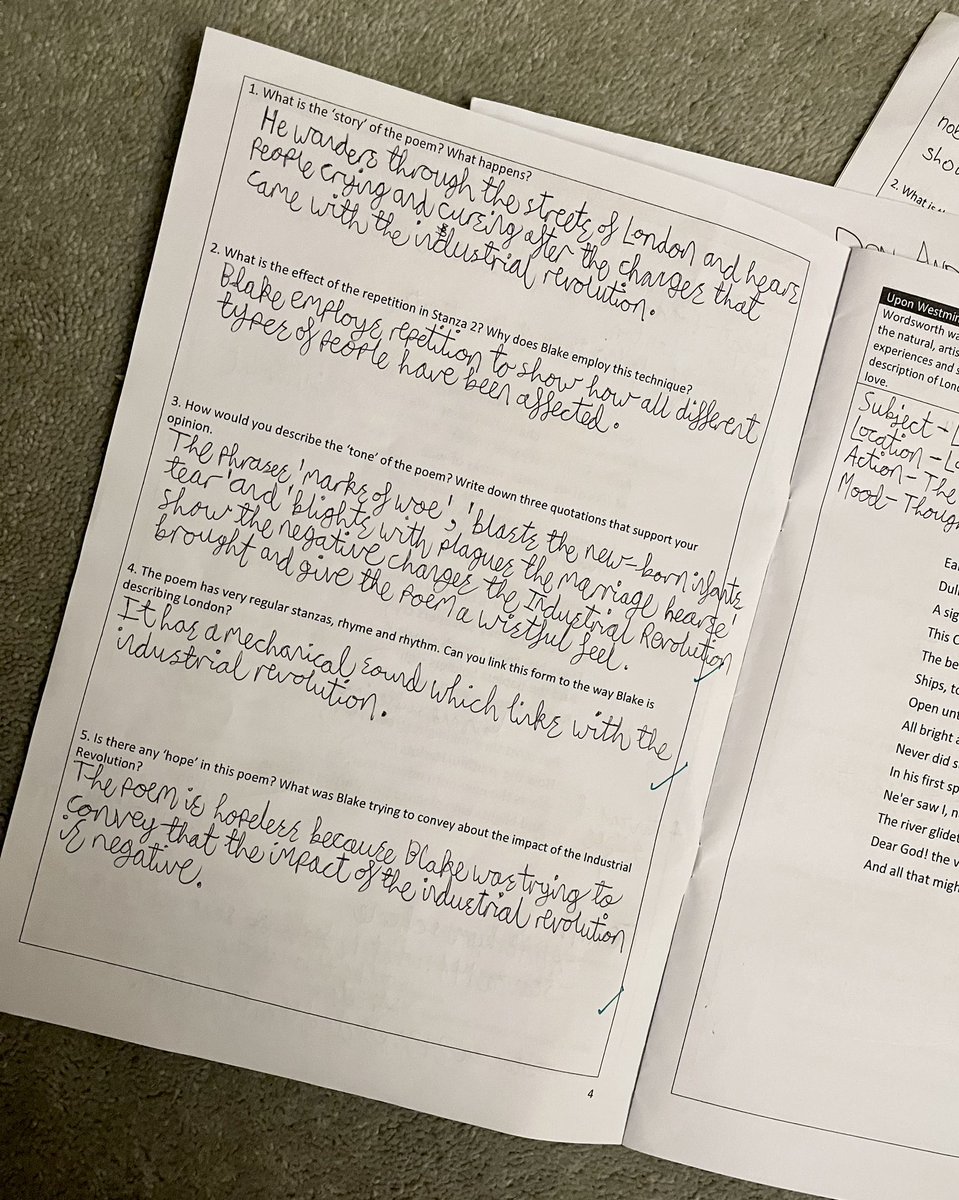 1. What is the 'story' of the poem? What happens?
He wanders through the streets of London and hears
People crying and cursing after the changes that
came with the industrial revolution.
2. What is the effect of the repetition in Stanza 2? Why does Blake employ this technique?
Blake employs repetition to show how all different
types of people have been affected.
3. How would you describe the 'tone' of the poem? Write down three quotations that support your
opinion.
The phrases 'marks of woe', 'blasts the new-born infants
tear' and 'blights with plagues the marriage hearse'
show the negative changes the Industrial Revolution
brought and give the poem a wistful feel.
4. The poem has very regular stanzas, rhyme and rhythm. Can you link this form to the way Blake is
describing London?
It has a mechanical sound which links with the
industrial revolution.
5. Is there any 'hope' in this poem? What was Blake trying to convey about the impact of the Industrial
Revolution?
The poem is hopeless because Blake was trying to
convey that the impact of the industrial revolution
is negative.
4
2. What is
Upon Westmin
Wordsworth wa
the natural, artis
experiences and s
description of Lond
love.
Subject - L
Location - Lo
Action - The
Mood - Though
Ear
Dull
A sig
This C
The be
Ships, to
Open unt
All bright a
Never did s
In his first sp
Ne'er saw I, n
The river glidet
Dear God! the v
And all that migh